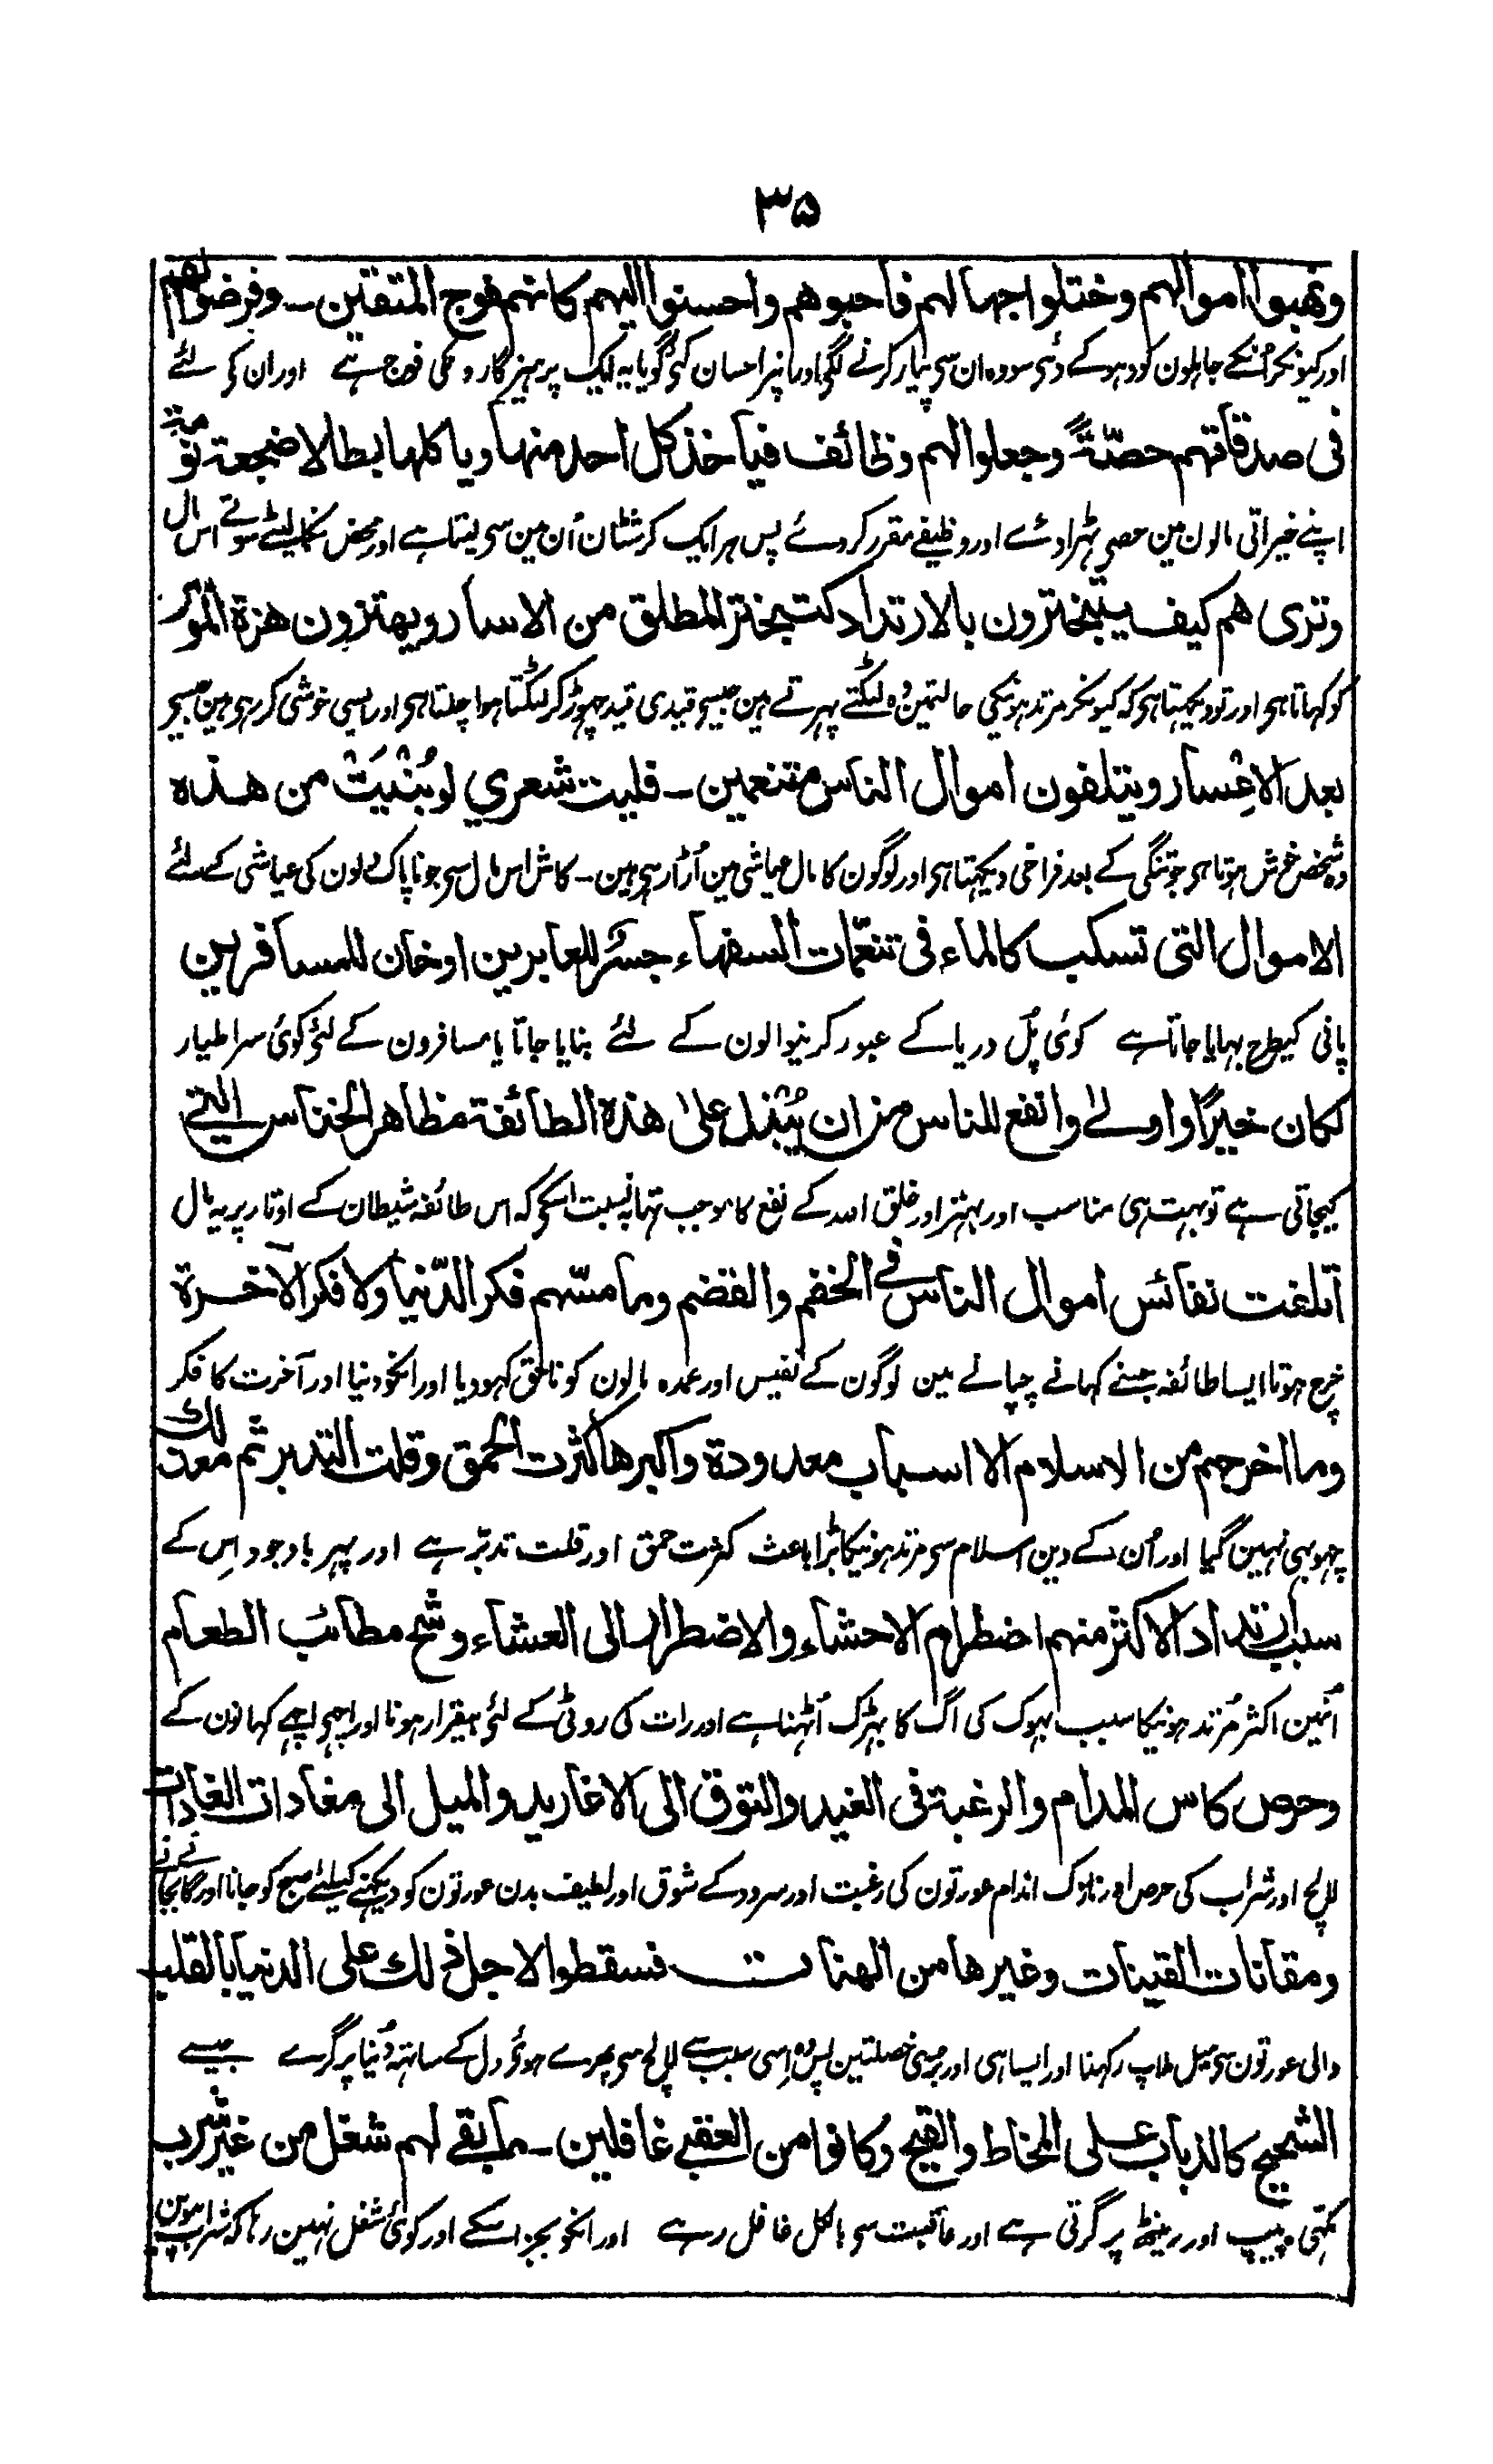 ۳۵
ونهبوا اموالهم وختلوا جهالهم فاحبوهم واحسنوا اليهم كانهم فوج المتقين ـ وفرضوا لهم
اور کیونکر اُنکے جاہلون کو دہوکے دئی سو وہ ان سی پیار کرنے لگی اور انپر احسان کئی گویا یہ ایک پرہیزگارونکی فوج ہے اور ان کی لئے
فى صدقاتهم حصّةً وجعلوا لهم وظائف فياخذ كل احد منها وياكلها بطالا ضجعة نومة
اپنے خیراتی مالون مین حصی ٹہرا دئے اور وظیفے مقرر کر دئے پس ہر ایک کرشٹان اُن مین سی لیتا ہے اور محض نکما لیٹے سوتے اس مال
وترى هم كيف يتبخترون بالارتداد كتبختر المطلق من الاسار ويهتزون هزة الموسر
کو کہاتا ہی اور تو دیکہتا ہی کہ کیونکر مرتد ہونیکی حالتمین وُہ لٹکتے پہرتے ہین جیسی قیدی قید چہوڑ کر لٹکتا ہوا چلتا ہی اور ایسی خوشی کر رہی ہین جیسی
بعد الاعسار ويتلفون اموال الناس متنعمين ـ فليت شعري لو بُنيَتْ من هذه
وہ شخص خوش ہوتا ہی جو تنگی کے بعد فراخی دیکہتا ہی اور لوگون کا مال عیاشی مین اُڑا رہی ہین ـ کاش اس مال سی جو ناپاک دلون کی عیاشی کے لئے
الاموال التى تسكب كالماء فى تنعّمات السفهاء جسرٌ للعابرين او خان للمسافرين
پانی کیطرح بہایا جاتا ہے کوئی پُل دریا کے عبور کرنیوالون کے لئے بنایا جاتا یا مسافرون کے لئی کوئی سرا طیار
لكان خيرًا واولےٰ وانفع للناس من ان يُبذل علىٰ هذه الطائفة مظاهر الخناس التے
کیجاتی ہے تو بہت ہی مناسب اور بہتر اور خلق اللہ کے نفع کا موجب تہا بہ نسبت اسکی کہ اس طائفہ شیطان کے اوتار پر یہ مال
اتلفت نفائس اموال الناس فے الخضم والقضم وما مسّهم فكر الدّنيا ولا فكر الآخرة
خرچ ہوتا ایسا طائفہ جسنے کہانے چبانے مین لوگون کے نفیس اور عمدہ مالون کو ناحق کہو دیا اور انکو دنیا اور آخرت کا فکر
وما اخرجهم من الاسلام الا اسباب معدودة واكبرها كثرت الحمق وقلت التدبر ثم مع ذلك
چہو بہی نہین گیا اور اُن کے دین اسلام سی مرتد ہونیکا بڑا باعث کثرت حمق اور قلت تدبّر ہے اور پہر باوجود اِس کے
سبب ارتداد الاكثر منهم اضطرام الاحشاء والاضطرار الى العشاء وشح مطائب الطعام
اُنہین اکثر مُرتد ہونیکا سبب بہوک کی اگ کا بہڑک اُٹہنا ہے اور رات کی روٹی کے لئی بیقرار ہونا اور اچہی اچہے کہانون کے
وحرص كاس المدام والرغبة فى الغيد والتوق الى الاغاريد والميل الى مغادات الغادات
لالچ اور شراب کی حرص اور نازک اندام عورتون کی رغبت اور سرود کے شوق اور لطیف بدن عورتون کو دیکہنے کیلئے صبح کو جانا اور گانے بجانے
ومقانات القينات وغيرها من الهنات فسقطوا لاجل ذلك على الدنيا بالقلب
والی عورتون سی میل ملاپ رکہنا اور ایسا ہی اور بری خصلتین پس وہ اِسی سبب سے لالچ سی بہرے ہوئی دل کے ساتہہ دُنیا پر گرے جیسے
الشحيح كالذباب على المخاط والقيح وكانوا من العقبے غافلين ـ ما بقے لهم شغل من غير شرب
مکہی پیپ اور رینٹھ پر گرتی ہے اور عاقبت سی بالکل غافل رہے اور انکو بجز اسکے اور کوئی شغل نہین رہا کہ شراب